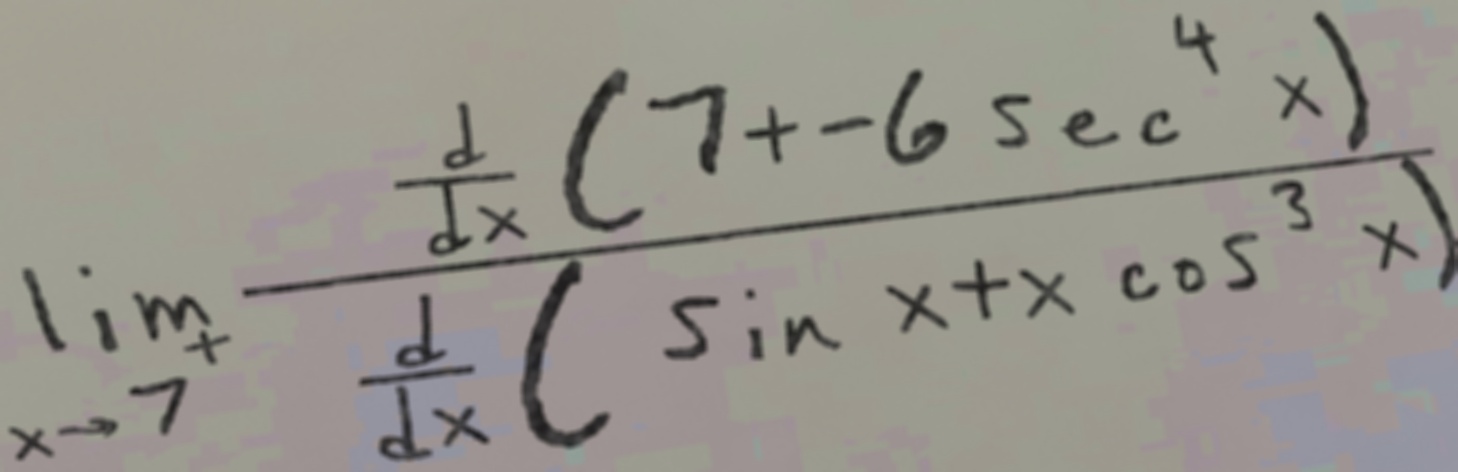 \lim_{x \to 7^+} \frac{\frac{d}{dx}\left(7+-6\sec^4 x\right)}{\frac{d}{dx}\left(\sin x+x\cos^3 x\right)}